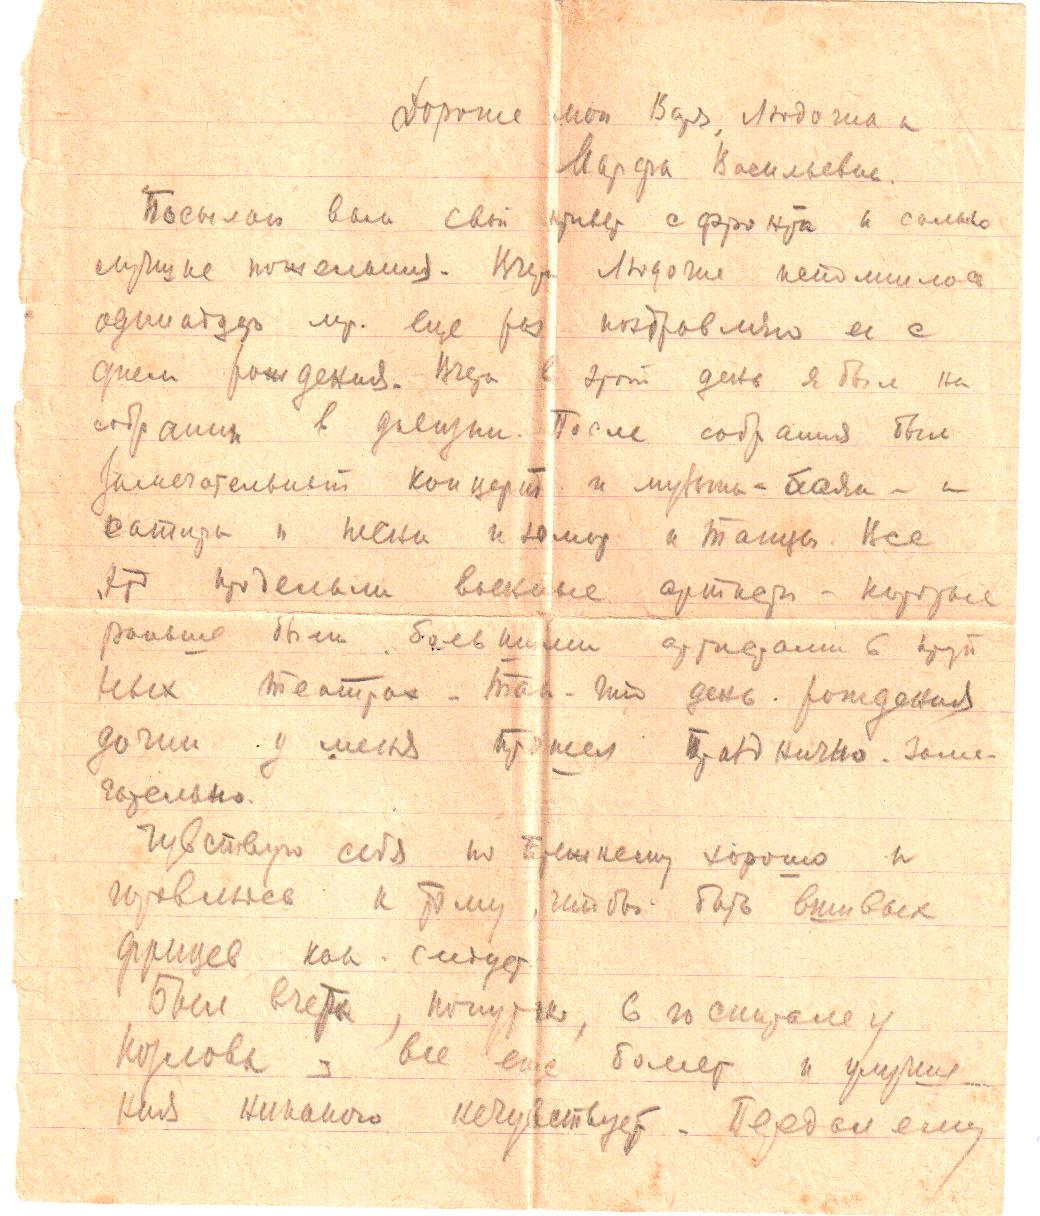 Дорогие мои Варя, Людочка и
Марфа Васильевна.
Посылаю вам свой привет с фронта и самые
лучшие пожелания. Вчера Людочке исполнилось
одиннадцать лет. еще раз поздравляю ее с
днем рождения. Вчера в этот день я был на
собрании в дивизии. После собрания был
замечательный концерт и музыка - баян - и
сатира и песни и юмор и танцы. Все
это проделали военные артисты - которые
раньше были большими артистами в круп
ных театрах - так - что день рождения
дочки у меня прошел празднично. Заме-
чательно.
Чувствую себя по прежнему хорошо и
готовлюсь к тому, чтобы бить вшивых
фрицев как следует
Был вчера, попутно, в госпитале у
Козлова - все еще болеет и улучше-
ния никакого нечувствует - Передал ему